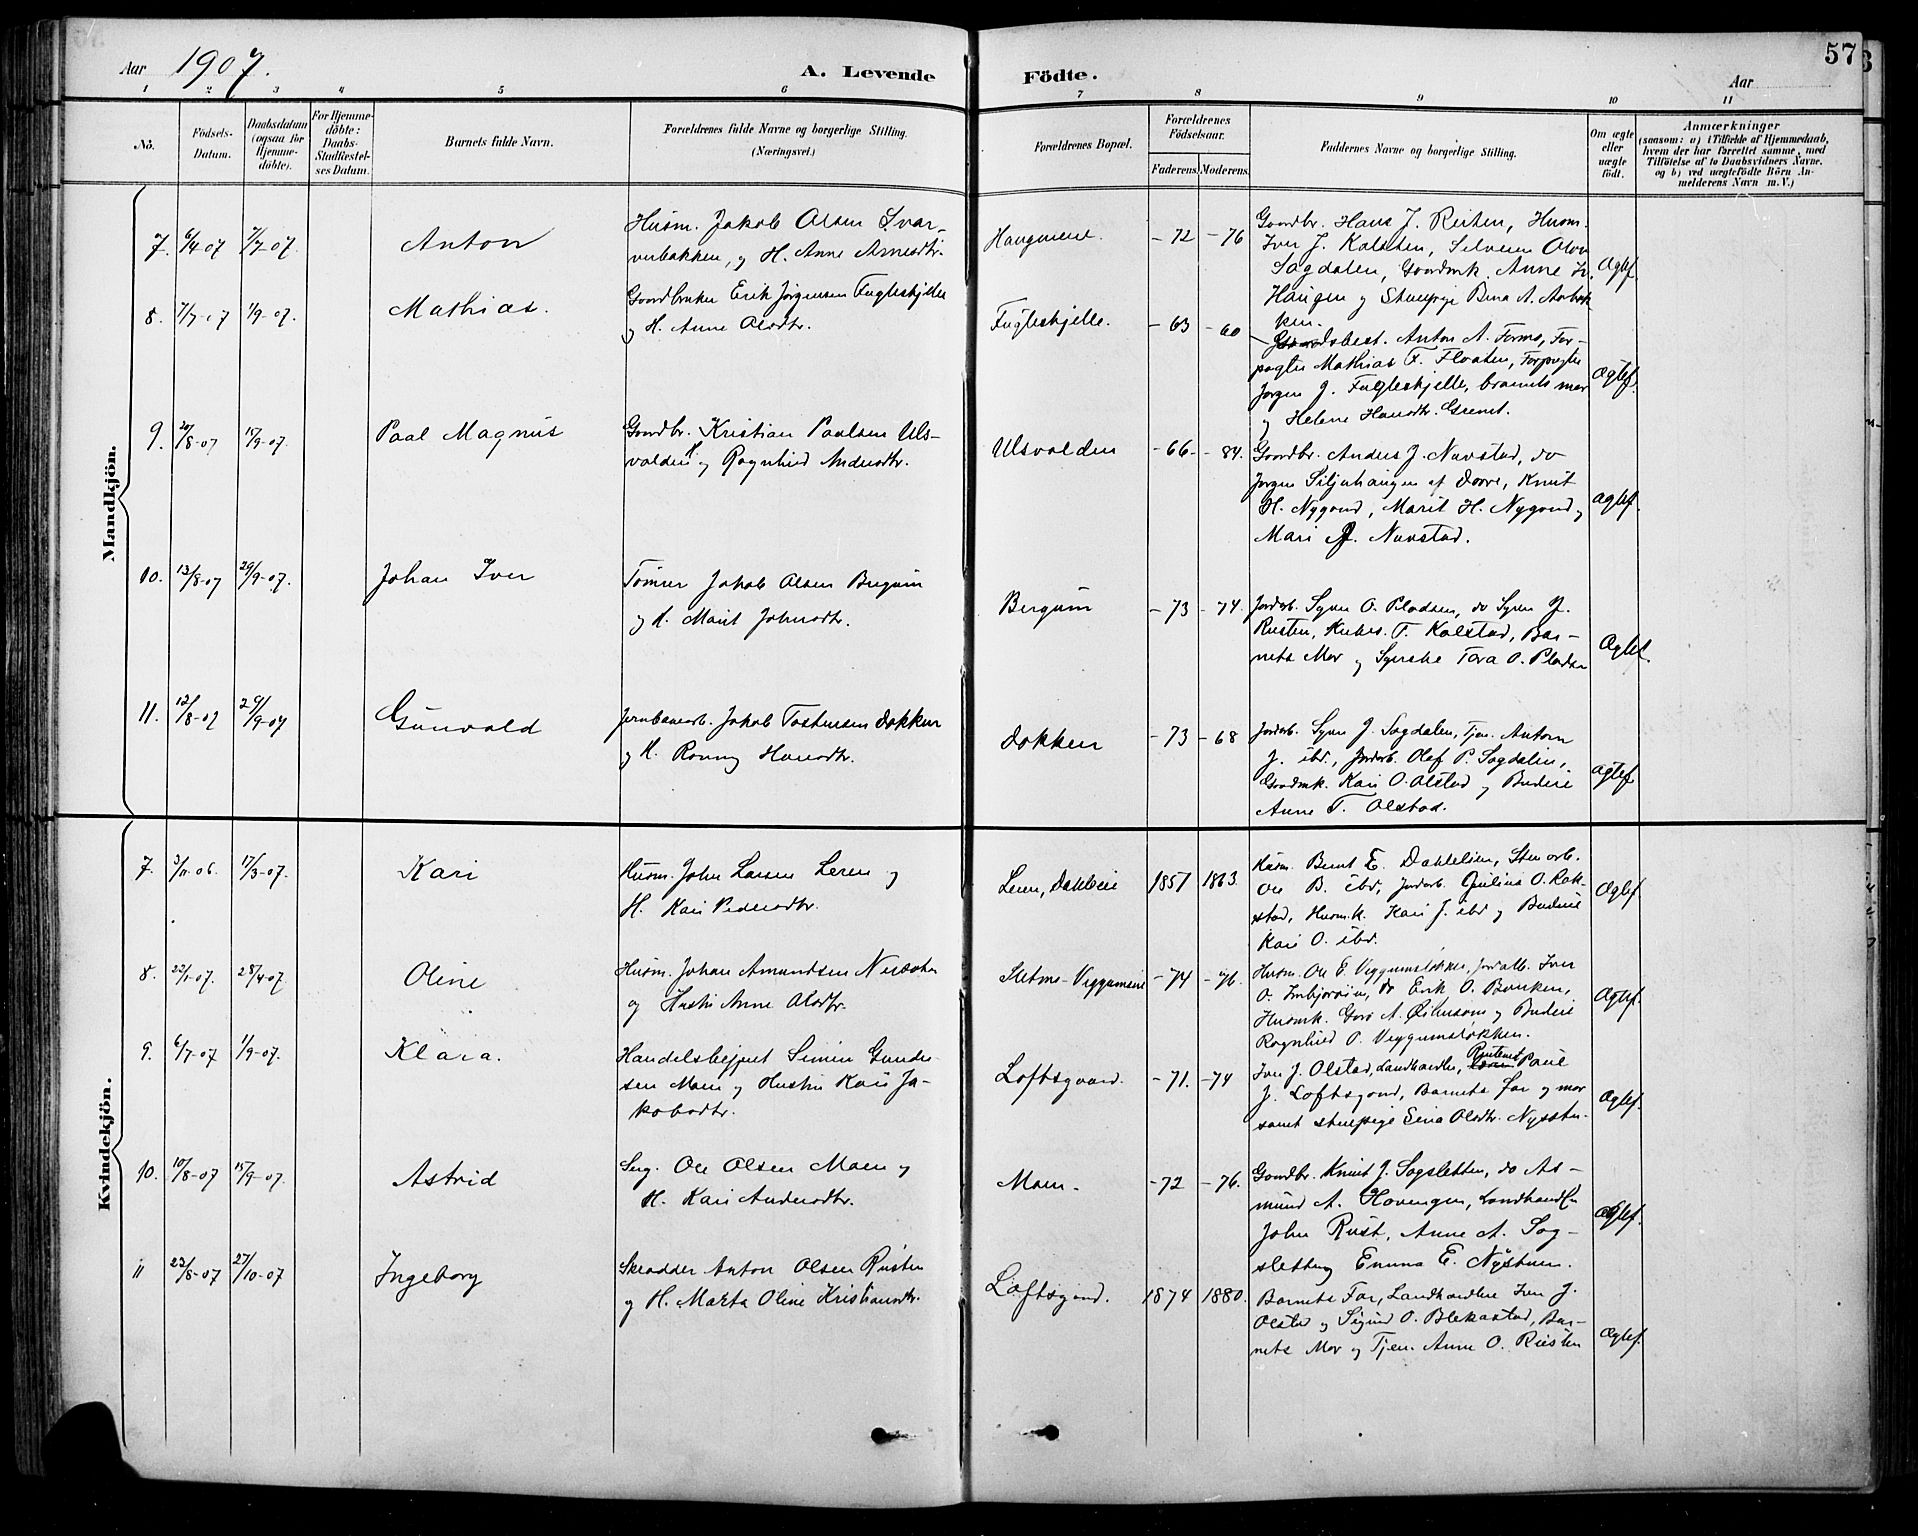 Aar 1907.
A. Levende
Födte.
Aar
57
1 2 3 4 5 6 7 8 9 10 11
No.
Födsels-
Datum.
Daabsdatum
(ogsaa for
Hjemme-
döbte).
For Hjemme-
döbte:
Daabs-
Stadfæstel-
ses Datum.
Barnets fulde Navn.
Forældrenes fulde Navne og borgerlige Stilling.
(Næringsvei.)
Forældrenes Bopæl.
Forældrenes
Födselsaar.
Faderens. Moderens.
Faddernes Navne og borgerlige Stilling.
Om ægte
eller
uægte
födt.
Anmærkninger
(saasom: a) i Tilfælde af Hjemmedaab,
hvem der har forrettet samme, med
Tilföielse af to Daabsvidners Navne.
og b) ved uægtefödte Börn An-
melderens Navn m. V.)
Mandkjön.
7. 6/4 07 7/7-07. Anton
Husm. Jakob Olsen Svar-
verbakken, og H. Anne Arnesdtr.
Haugmene. -72 -76
Gaardbr. Hans J. Rusten, Husm.
Iver J. Kalsten, Selveier Olav
Sogdalen, Gaardmk. Anne
Haugen og Stuepige Bina A. Aarbak-
ken.
Ægtef.
8. 7/7-07 1/9-07. Mathias.
Gaardbruker Erik Jørgensen Fugleskjelle
og H. Anne Olsdtr.
Fugleskjelle. -63 -60
Gaardsbest. Anton A. Formo, For-
pagter Mathias F. Floaten, Forpagter
Jørgen J. Fugleskjelle, barnets mor
og Helene Hansdtr. Grenet.
Ægtef.
9. 20/8-07 15/9-07. Paal Magnus
Gaardbr. Kristian Paulsen Uls-
volden og H. Ragnhild Andersdtr.
Ulsvolden -66- -84.
Gaardbr. Anders J. Navstad, do
Jørgen Siljuhaugen af Dovre, Knut
H. Nygaard, Marit H. Nygaard og
Mari J. Navstad.
Ægtef.
10. 13/8-07 29/9-07. Johan Iver
Tømrer Jakob Olsen Bergum
og H. Marit Johnsdtr.
Bergum -73 -74.
Jordarb. Syver O. Pladsen, do Syver J.
Rusten, T. Kolstad, Bar-
nets Mor og Syerske Tora O. Pladsen
Ægtef.
11. 12/8-07 29/9-07 Gunvald
Jernbanearb. Jakob Tostensen Dokken
og H. Rønnog Hansdtr.
Dokken -73 -68
Jordarb. Syver J. Sogdalen, Tjen. Anton
J. ibd., Jordarb. Olaf P. Sogdalen,
Gaardmk. Kari O. Olstad og Budeie
Anne T. Olstad.
Ægtef.
Kvindekjön.
7. 3/11-06. 17/3-07. Kari
Husm. John Larsen Leren og
H. Kari Pedersdtr.
Leren, Dahleie 1857 1863.
Husm. Bernt E. Dahleien, Stenarb.
Ole B. ibd, Jordarb. Julius O. Rok-
stad, Husmk. Kari J. ibd og Budeie
Kari O. ibd.
Ægtef.
8. 22/1-07. 28/4-07. Oline
Husm. Johan Amundsen
og Hustru Anne Olsdtr.
Sletmo-Viggumeie -74 -76.
Husm. Ole E. Viggumsløkken, Jordarb. Iver
O. do Erik O. Bakken,
Husmk. Goro A. og Budeie
Ragnhild O. Viggumsløkken.
Ægtef.
9. 6/7-07 1/9-07. Klara.
Handelsbetjent Simen Gunder-
sen Moen og Hustru Kari Ja-
kobsdtr.
Loftsgaard. -71. -74
Iver J. Olstad, Landhandler, Rentenist Paul
J. Loftsgaard, Barnets far og mor
samt stuepige Sina Olsdtr. Nysstu-
Ægtef.
10. 10/8-07 15/9-07. Astrid
Serg. Ole Olsen Moen og
H. Kari Andersdtr.
Moen. -72 -76.
Gaardbr. Knut J. Sogsletten, do As-
mund A. Hovengen, Landhandler
John Rust, Anne A. Sog-
sletten og Emma E. Nystuen.
Ægtef.
11 22/8-07 27/10-07 Ingeborg
Skrædder Anton Olsen Rusten
og H. Marta Oline Kristiansdtr.
Loftsgaard. 1874 1880.
Barnets Far, Landhandler Iver J.
Olstad og Sigurd O. Blekastad, Bar-
nets Mor og Tjen. Anne O. Rusten
Ægtef.